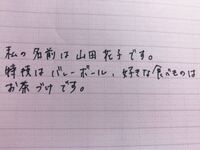 私の名前は山田花子です。
特技はバレーボール、好きな食べものは
お茶づけです。